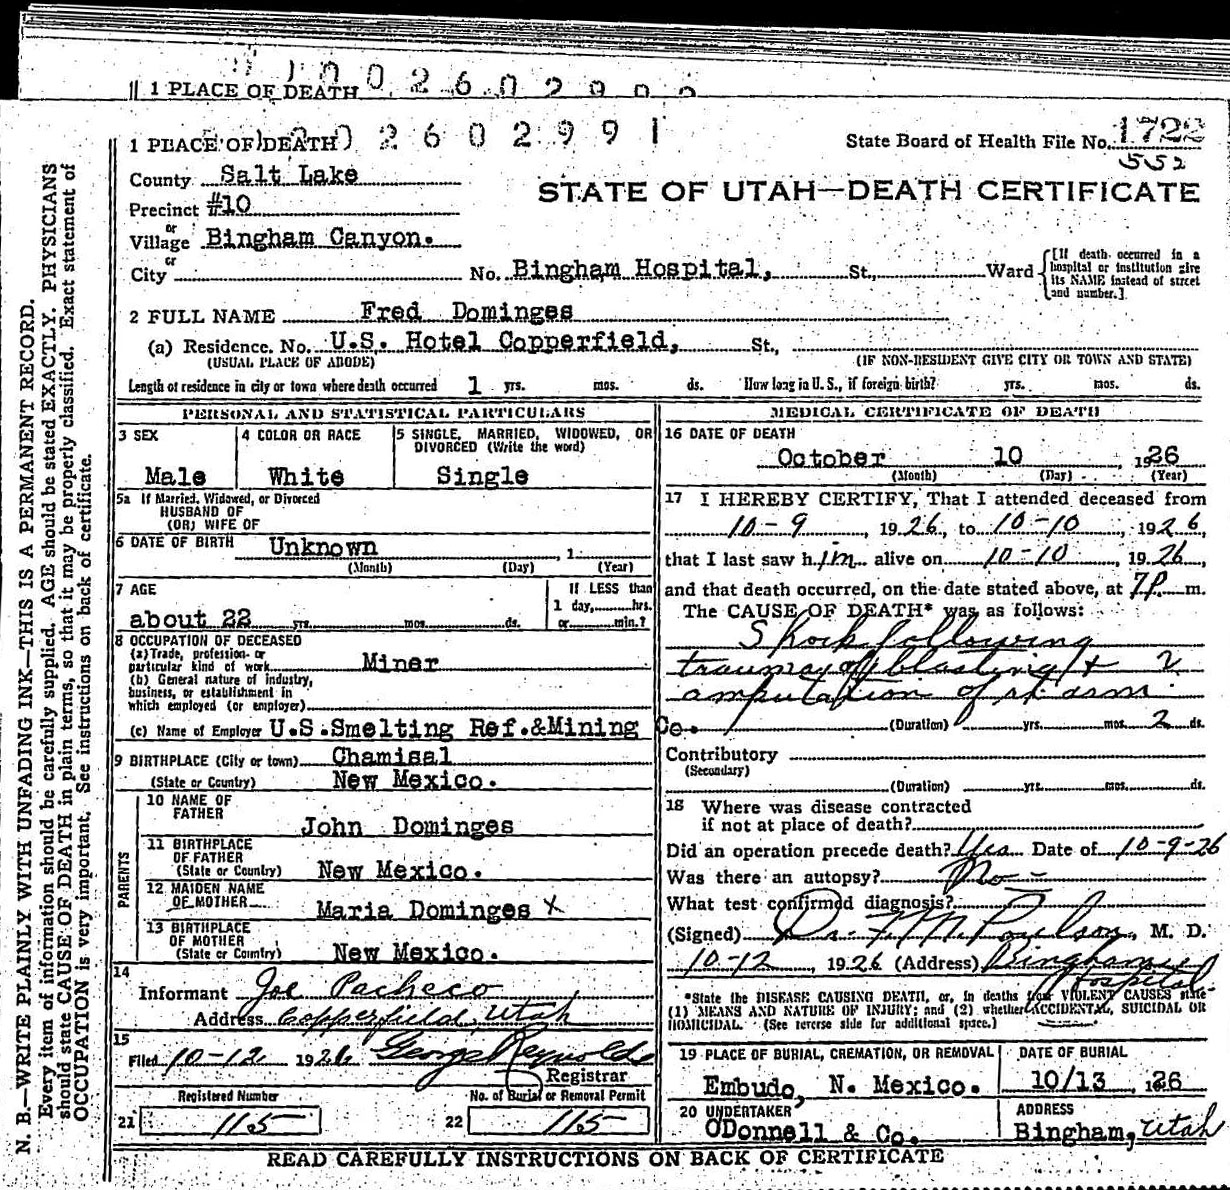 1 PLACE OF DEATH
1 PLACE OF DEATH 2602991
State Board of Health File No. 1722
552
County Salt Lake
STATE OF UTAH—DEATH CERTIFICATE
Precinct #10
or
Village Bingham Canyon.
or
City No. Bingham Hospital, St., Ward
[If death occurred in a
hospital or institution give
its NAME instead of street
and number.]
2 FULL NAME Fred Dominges
(a) Residence. No. U.S. Hotel Copperfield, St.,
(USUAL PLACE OF ABODE) (IF NON-RESIDENT GIVE CITY OR TOWN AND STATE)
Length of residence in city or town where death occurred 1 yrs. mos. ds. How long in U. S., if foreign birth? yrs. mos. ds.
PERSONAL AND STATISTICAL PARTICULARS
3 SEX
Male
4 COLOR OR RACE
White
5 SINGLE, MARRIED, WIDOWED, OR
DIVORCED (Write the word)
Single
5a If Married, Widowed, or Divorced
HUSBAND OF
(OR) WIFE OF
6 DATE OF BIRTH Unknown , 1
(Month) (Day) (Year)
7 AGE
about 22 yrs. mos. ds.
If LESS than
1 day, hrs.
or min.?
8 OCCUPATION OF DECEASED
(a) Trade, profession or
particular kind of work Miner
(b) General nature of industry,
business, or establishment in
which employed (or employer)
(c) Name of Employer U.S.Smelting Ref.&Mining Co.
9 BIRTHPLACE (City or town) Chamisal
(State or Country) New Mexico.
PARENTS
10 NAME OF
FATHER
John Dominges
11 BIRTHPLACE
OF FATHER
(State or Country) New Mexico.
12 MAIDEN NAME
OF MOTHER Maria Dominges X
13 BIRTHPLACE
OF MOTHER
(State or Country) New Mexico.
14
Informant Joe Pacheco
Address Copperfield, Utah
15
Filed 10-12 1926 George Reynolds
Registrar
Registered Number No. of Burial or Removal Permit
21 115 22 115
MEDICAL CERTIFICATE OF DEATH
16 DATE OF DEATH
October 10 , 1926
(Month) (Day) (Year)
17 I HEREBY CERTIFY, That I attended deceased from
10-9 1926, to 10-10, 1926,
that I last saw him alive on 10-10, 1926,
and that death occurred, on the date stated above, at 7P. m.
The CAUSE OF DEATH* was as follows:
Shock following
trauma of blasting &
amputation of rt arm
(Duration) yrs. mos. 2 ds.
Contributory
(Secondary)
(Duration) yrs. mos. ds.
18 Where was disease contracted
if not at place of death?
Did an operation precede death? Yes Date of 10-9-26
Was there an autopsy? No
What test confirmed diagnosis?
(Signed) Dr. F. M. Poulson, M. D.
10-12, 1926 (Address) Bingham
Hospital.
*State the DISEASE CAUSING DEATH, or, in deaths from VIOLENT CAUSES state
(1) MEANS AND NATURE OF INJURY; and (2) whether ACCIDENTAL, SUICIDAL OR
HOMICIDAL. (See reverse side for additional space.)
19 PLACE OF BURIAL, CREMATION, OR REMOVAL
Embudo, N. Mexico.
DATE OF BURIAL
10/13 , 1926
20 UNDERTAKER
ODonnell & Co.
ADDRESS
Bingham, Utah
READ CAREFULLY INSTRUCTIONS ON BACK OF CERTIFICATE
N. B.—WRITE PLAINLY WITH UNFADING INK—THIS IS A PERMANENT RECORD.
Every item of information should be carefully supplied. AGE should be stated EXACTLY. PHYSICIANS
should state CAUSE OF DEATH in plain terms, so that it may be properly classified. Exact statement of
OCCUPATION is very important. See instructions on back of certificate.